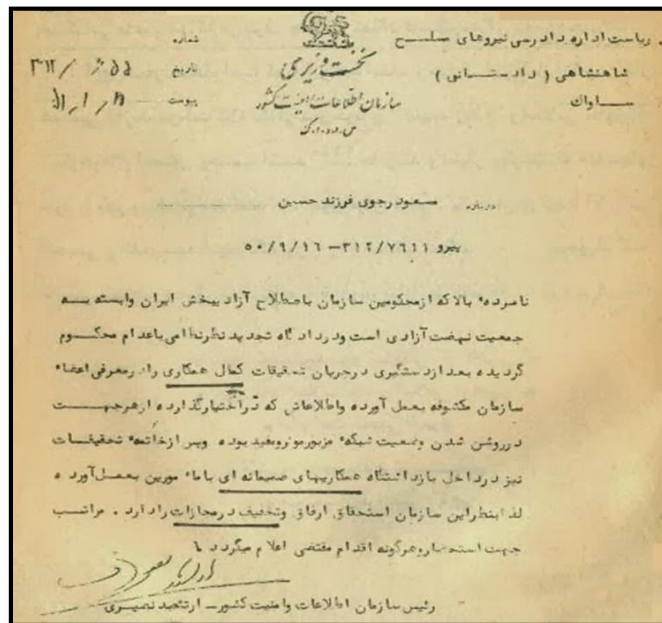 ریاست اداره دادرسی نیروهای مسلح
شاهنشاهی (دادستانی)
ساواک
نخست وزیری
سازمان اطلاعات و امنیت کشور
س.ا.و.ا.ک
شماره
تاریخ
پیوست
درباره مسعود رجوی فرزند حسین
پیرو ۳۱۲/۷۶۱۱ – ۵۰/۹/۱۶
نامبرده بالا که از محکومین سازمان باصطلاح آزادیبخش ایران وابسته به
جمعیت نهضت آزادی است و در دادگاه تجدید نظر نظامی باعدام محکوم
گردیده بعد از دستگیری در جریان تحقیقات کمال همکاری را در معرفی اعضاء
سازمان مکشوفه بعمل آورده و اطلاعاتی که در اختیار گذارده از هر جهت
در روشن شدن وضعیت شبکه مزبور موثر و مفید بوده و پس از خاتمه تحقیقات
نیز در داخل بازداشتگاه همکاریهای صمیمانه ای با مامورین بعمل آورده
لذا بنظر این سازمان استحقاق ارفاق و تخفیف در مجازات را دارد . مراتب
جهت استحضار و هرگونه اقدام مقتضی اعلام میگردد
رئیس سازمان اطلاعات و امنیت کشور – ارتشبد نصیری